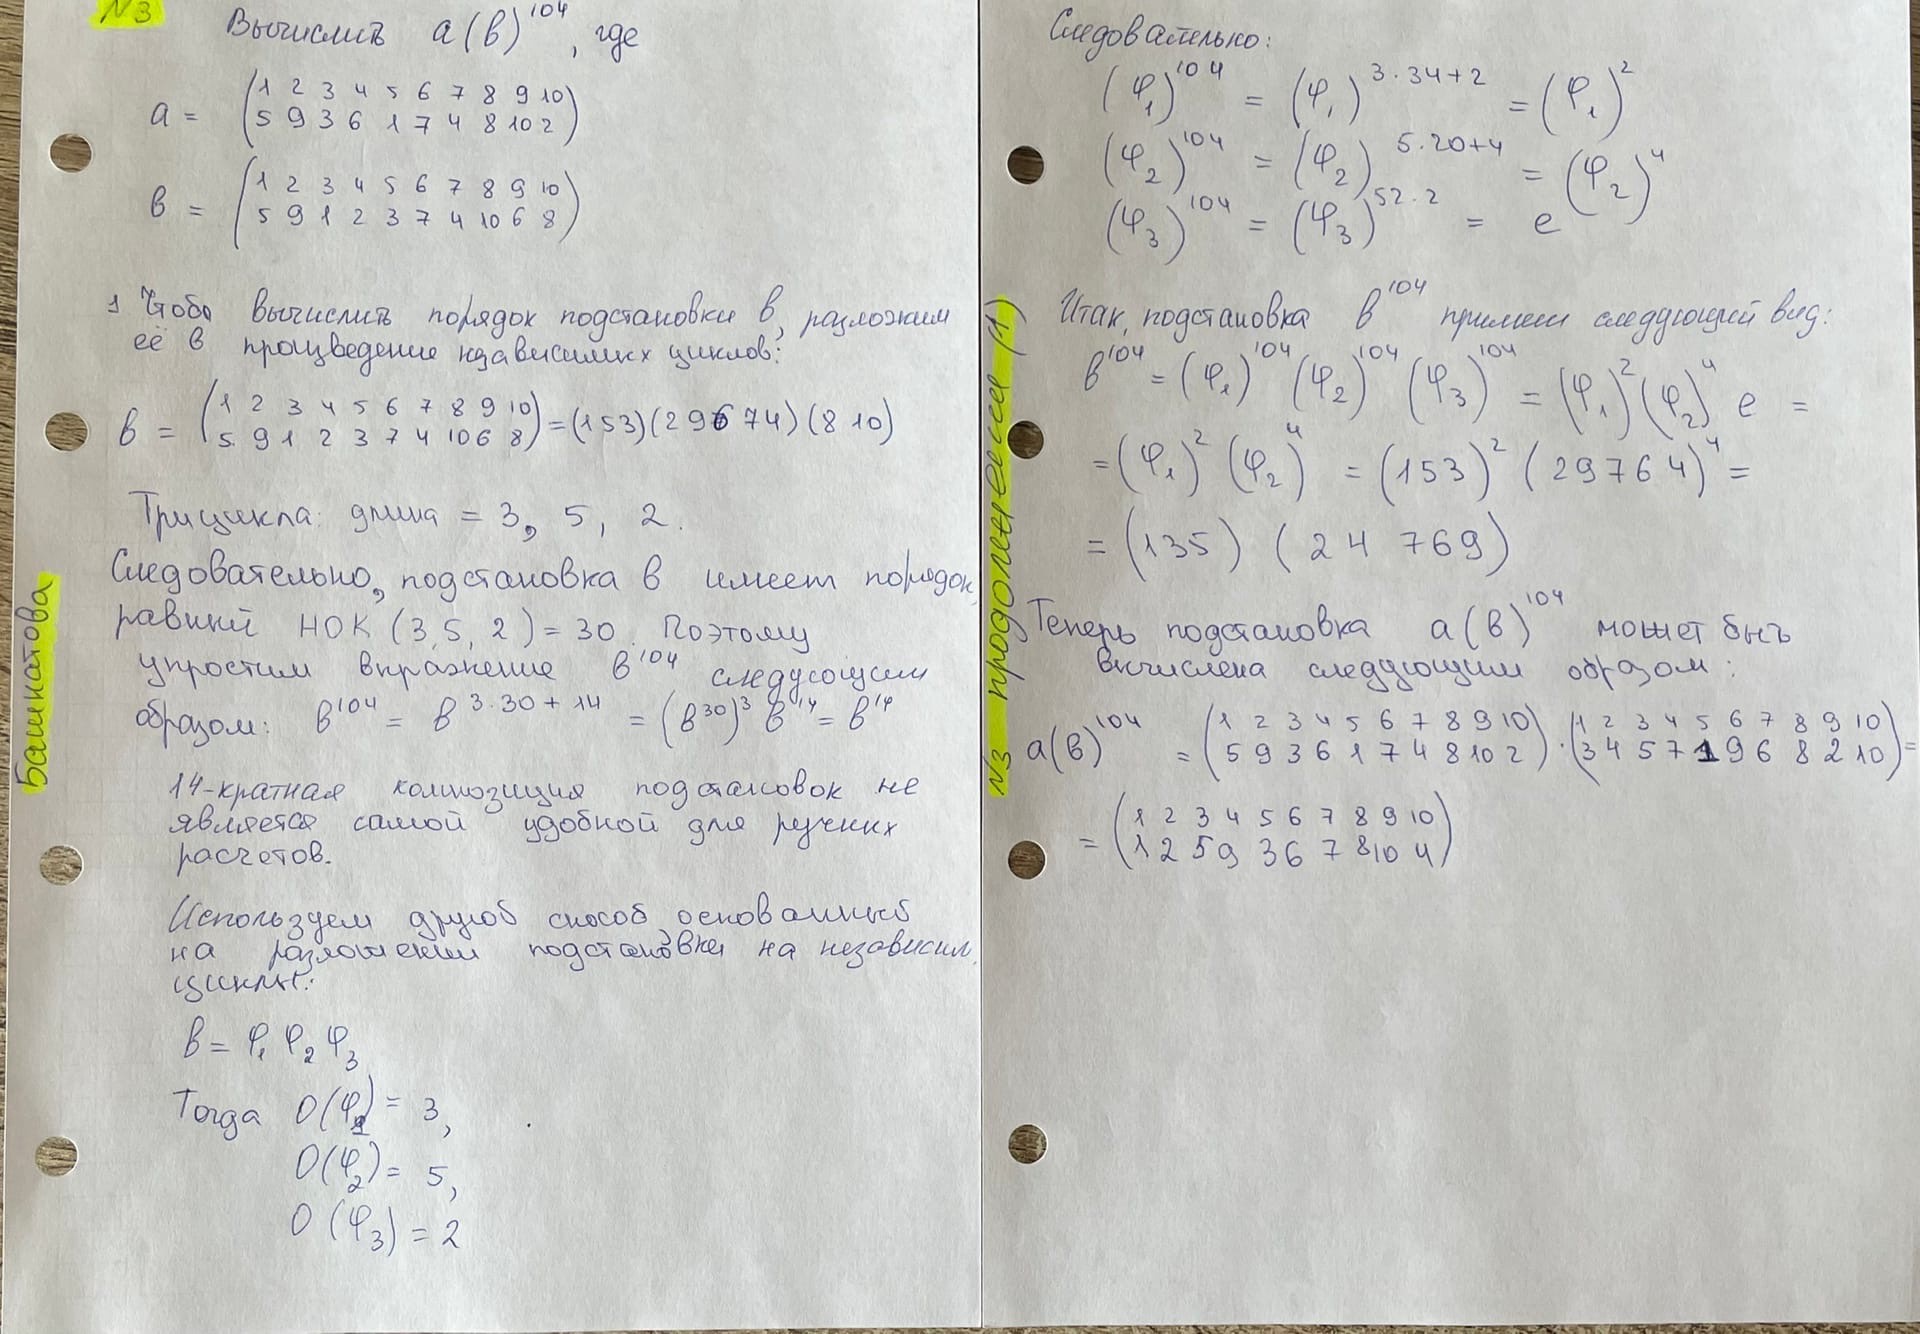 N3
Вычислить a(b)^104, где
a = (1 2 3 4 5 6 7 8 9 10)
(5 9 3 6 1 7 4 8 10 2)
b = (1 2 3 4 5 6 7 8 9 10)
(5 9 1 2 3 7 4 10 6 8)
1 Чтобы вычислить порядок подстановки b, разложим
её в произведение независимых циклов:
b = (1 2 3 4 5 6 7 8 9 10) = (153)(29674)(8 10)
(5 9 1 2 3 7 4 10 6 8)
Три цикла: длина = 3, 5, 2.
Следовательно, подстановка b имеет порядок,
равный НОК (3,5,2) = 30. Поэтому
упростим выражение b^104 следующим
образом: b^104 = b^(3·30+14) = (b^30)^3 b^14 = b^14
14-кратная композиция подстановок не
является самой удобной для ручных
расчетов.
Используем другой способ, основанный
на разложении подстановки на независим.
циклы:
b = φ₁ φ₂ φ₃
Тогда O(φ₁) = 3,
O(φ₂) = 5,
O(φ₃) = 2
Башматова
Следовательно:
(φ₁)^104 = (φ₁)^(3·34+2) = (φ₁)^2
(φ₂)^104 = (φ₂)^(5·20+4) = (φ₂)^4
(φ₃)^104 = (φ₃)^(52·2) = e
Итак, подстановка b^104 примет следующий вид:
b^104 = (φ₁)^104 (φ₂)^104 (φ₃)^104 = (φ₁)^2 (φ₂)^4 e =
= (φ₁)^2 (φ₂)^4 = (153)^2 (29764)^4 =
= (135) (24769)
Теперь подстановка a(b)^104 может быть
вычислена следующим образом:
a(b)^104 = (1 2 3 4 5 6 7 8 9 10) · (1 2 3 4 5 6 7 8 9 10) =
(5 9 3 6 1 7 4 8 10 2) (3 4 5 7 1 9 6 8 2 10)
= (1 2 3 4 5 6 7 8 9 10)
(1 2 5 9 3 6 7 8 10 4)
N3 продолжение (1)